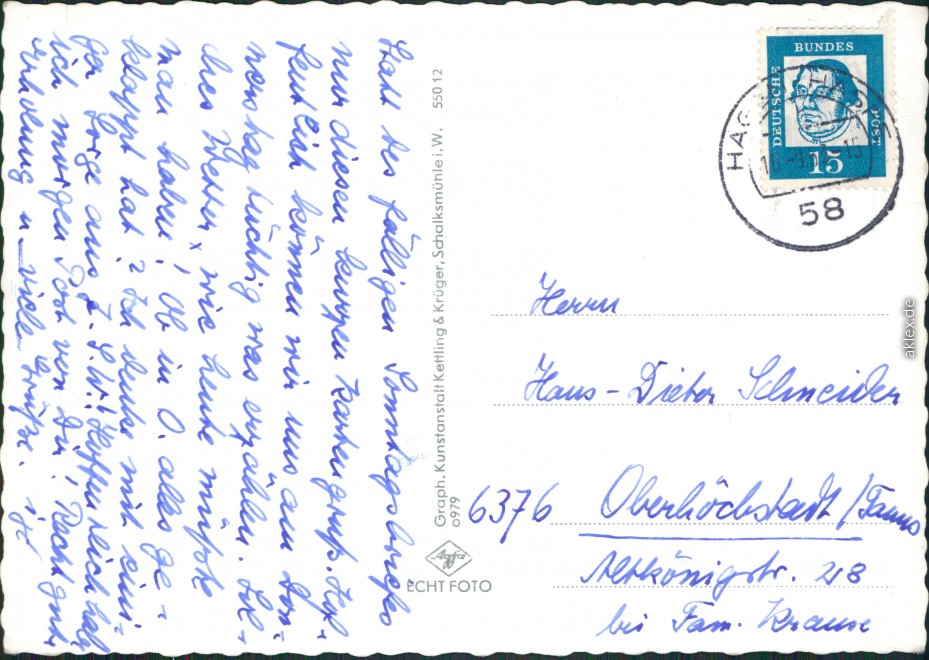 Statt des fälligen Sonntagsbriefes
nur diesen kurzen Kartengruß. Hof-
fentlich können wir uns am Don-
nerstag tüchtig was erzählen. Sol-
ches Wetter, wie heute müßte
man haben! Ob in O. alles ge-
klappt hat? Ich denke mit eini-
ger Sorge ans Z. Hoffentlich hab
ich morgen Post von Dir! Recht gute
Erholung u. viele Grüße.
Graph. Kunstanstalt Kettling & Krüger, Schalksmühle i. W. 550 12
o979
Agfa
ECHT FOTO
DEUTSCHE
BUNDES
POST
15
58
Herrn
Hans-Dieter Schneider
6376 Oberhöchstadt/Taunus
Altkönigstr. 28
bei Fam. Krause
aklex.de